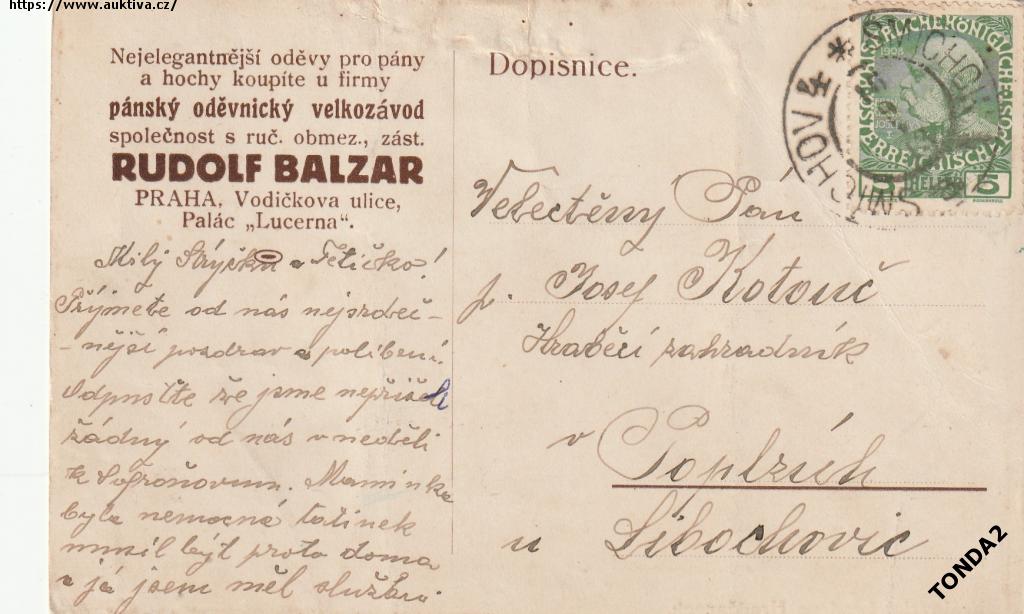 https://www.auktiva.cz/
Nejelegantnější oděvy pro pány
a hochy koupíte u firmy
pánský oděvnický velkozávod
společnost s ruč. obmez., zást.
RUDOLF BALZAR
PRAHA, Vodičkova ulice,
Palác „Lucerna“.
Milý Strýčku a Tetičko!
Příjmete od nás nejsrdeč-
-nější pozdrav a políbení.
Odpusťte že jsme nepřišeli
žádný od nás v neděli
k Sofroňovum. Maminka
byla nemocná tatínek
musil být proto doma
a já jsem měl službu.
Dopisnice.
1908
5 HELLER 5
SMÍCHOV 4
Velectěný Pan
p. Josef Kotouč
Hraběcí zahradník
v Poplzích
u Libochovic
TONDA2